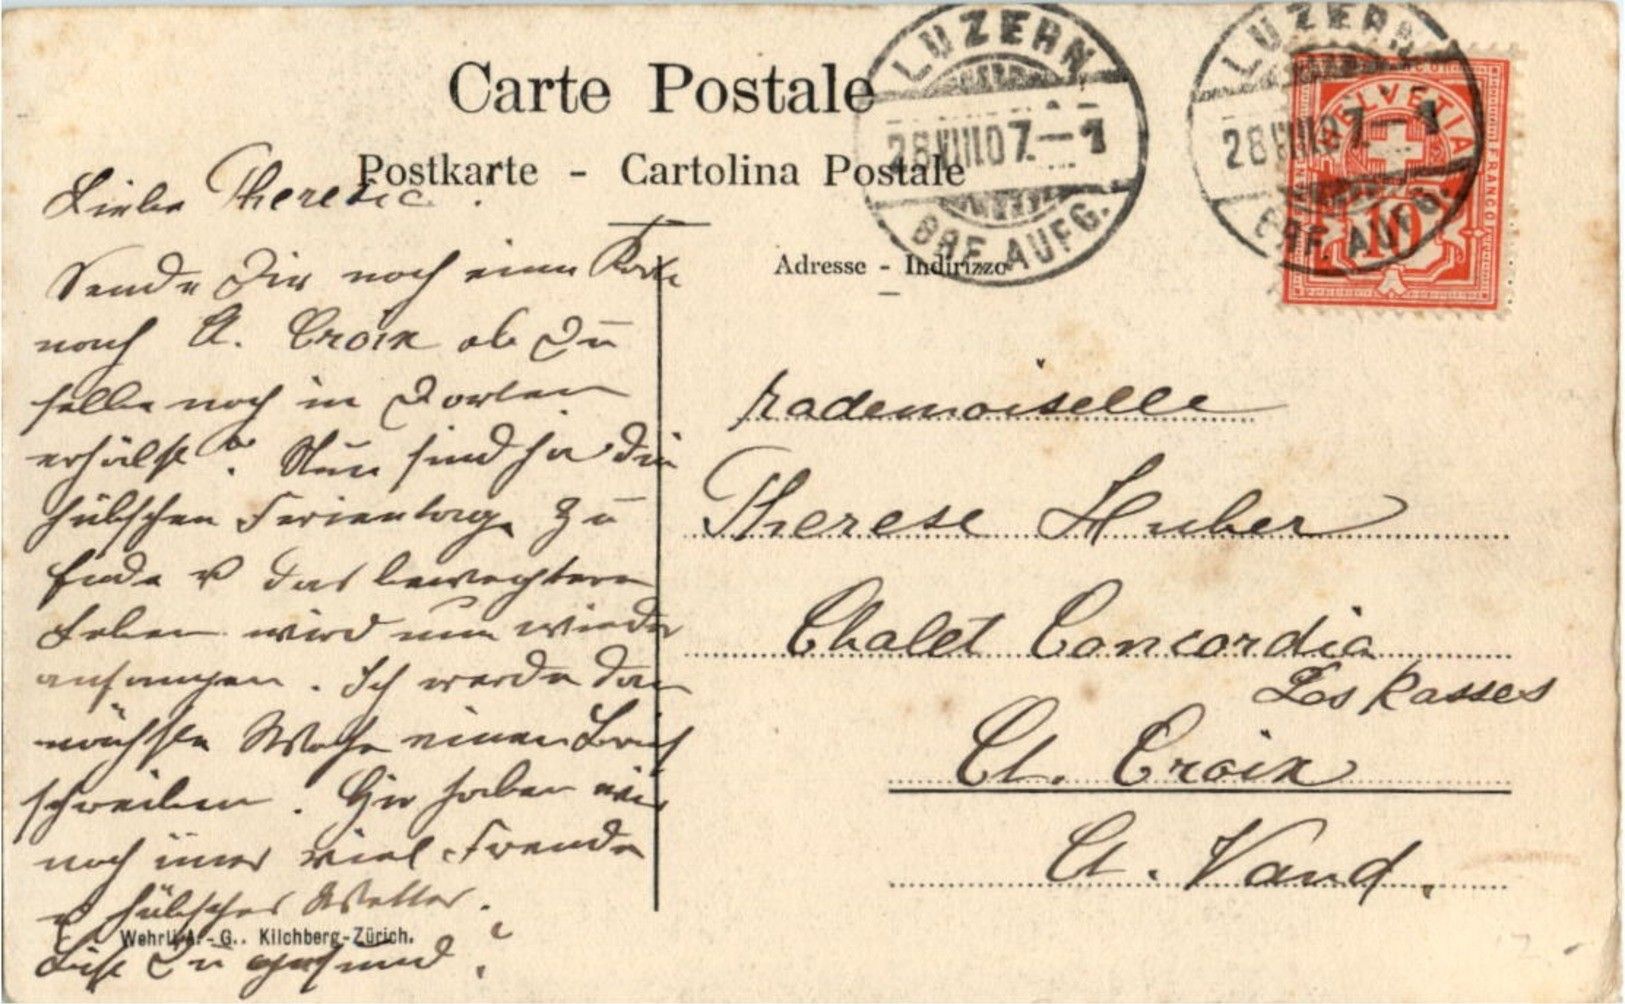 Carte Postale
Postkarte - Cartolina Postale
Adresse - Indirizzo
LUZERN
28.VIII.07.-1
BRF. AUFG.
LUZERN
28.VIII.07.-1
BRF. AUFG.
HELVETIA
FRANCO
10
Liebe Theresic.
Sende Dir noch eine Karte
nach St. Croix ob Du
selbe noch in Dorten
erhälst? Nun sind ja die
hübschen Ferientage zu
Ende u das bewegtere
Leben wird nun wieder
anfangen. Ich werde dan
nächste Woche einen Brief
schreiben. Hier haben wir
noch imer viel Fremde
u hübsches Wetter.
Bist Du gesund?
Wehrli A.-G., Kilchberg-Zürich.
Mademoiselle
Therese Huber
Chalet Concordia
Les Rasses
St. Croix
Ct. Vaud.